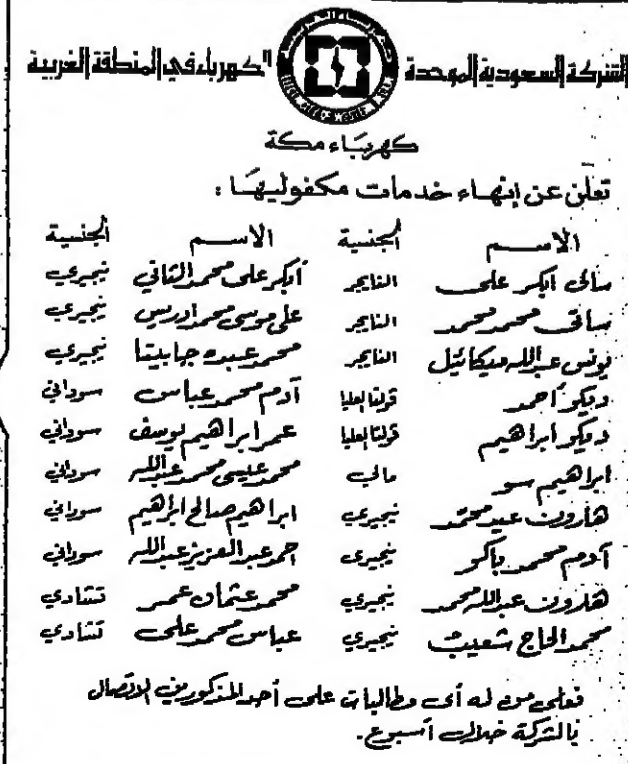 الشركة السعودية الموحدة للكهرباء في المنطقة الغربية
كهرباء مكة
تعلن عن إنهاء خدمات مكفوليها :
الاسم الجنسية الاسم الجنسية
سالى أبكر على النايجر أبكر على محمد الثاني نيجيري
ساقى محمد محمد النايجر على موسى محمد ادريس نيجيري
يونس عبدالله ميكائيل النايجر محمد عبده جابيتا نيجيري
ديكو أحمد فولتا العليا آدم محمد عباس سوداني
ديكو ابراهيم فولتا العليا عمر ابراهيم يوسف سوداني
ابراهيم سو مالي محمد عيسى محمد عبدالله سوداني
هارون عيد محمد نيجيري ابراهيم صالح ابراهيم سوداني
آدم محمد باكو نيجيرى احمد عبد العزيز عبدالله سوداني
هارون عبدالله محمد نيجيري محمد عثمان عمر تشادي
محمد الحاج شعيب نيجيري عباس محمد على تشادي
فعلى من له أى مطالبات على أحد المذكورين الاتصال
بالشركة خلال أسبوع.